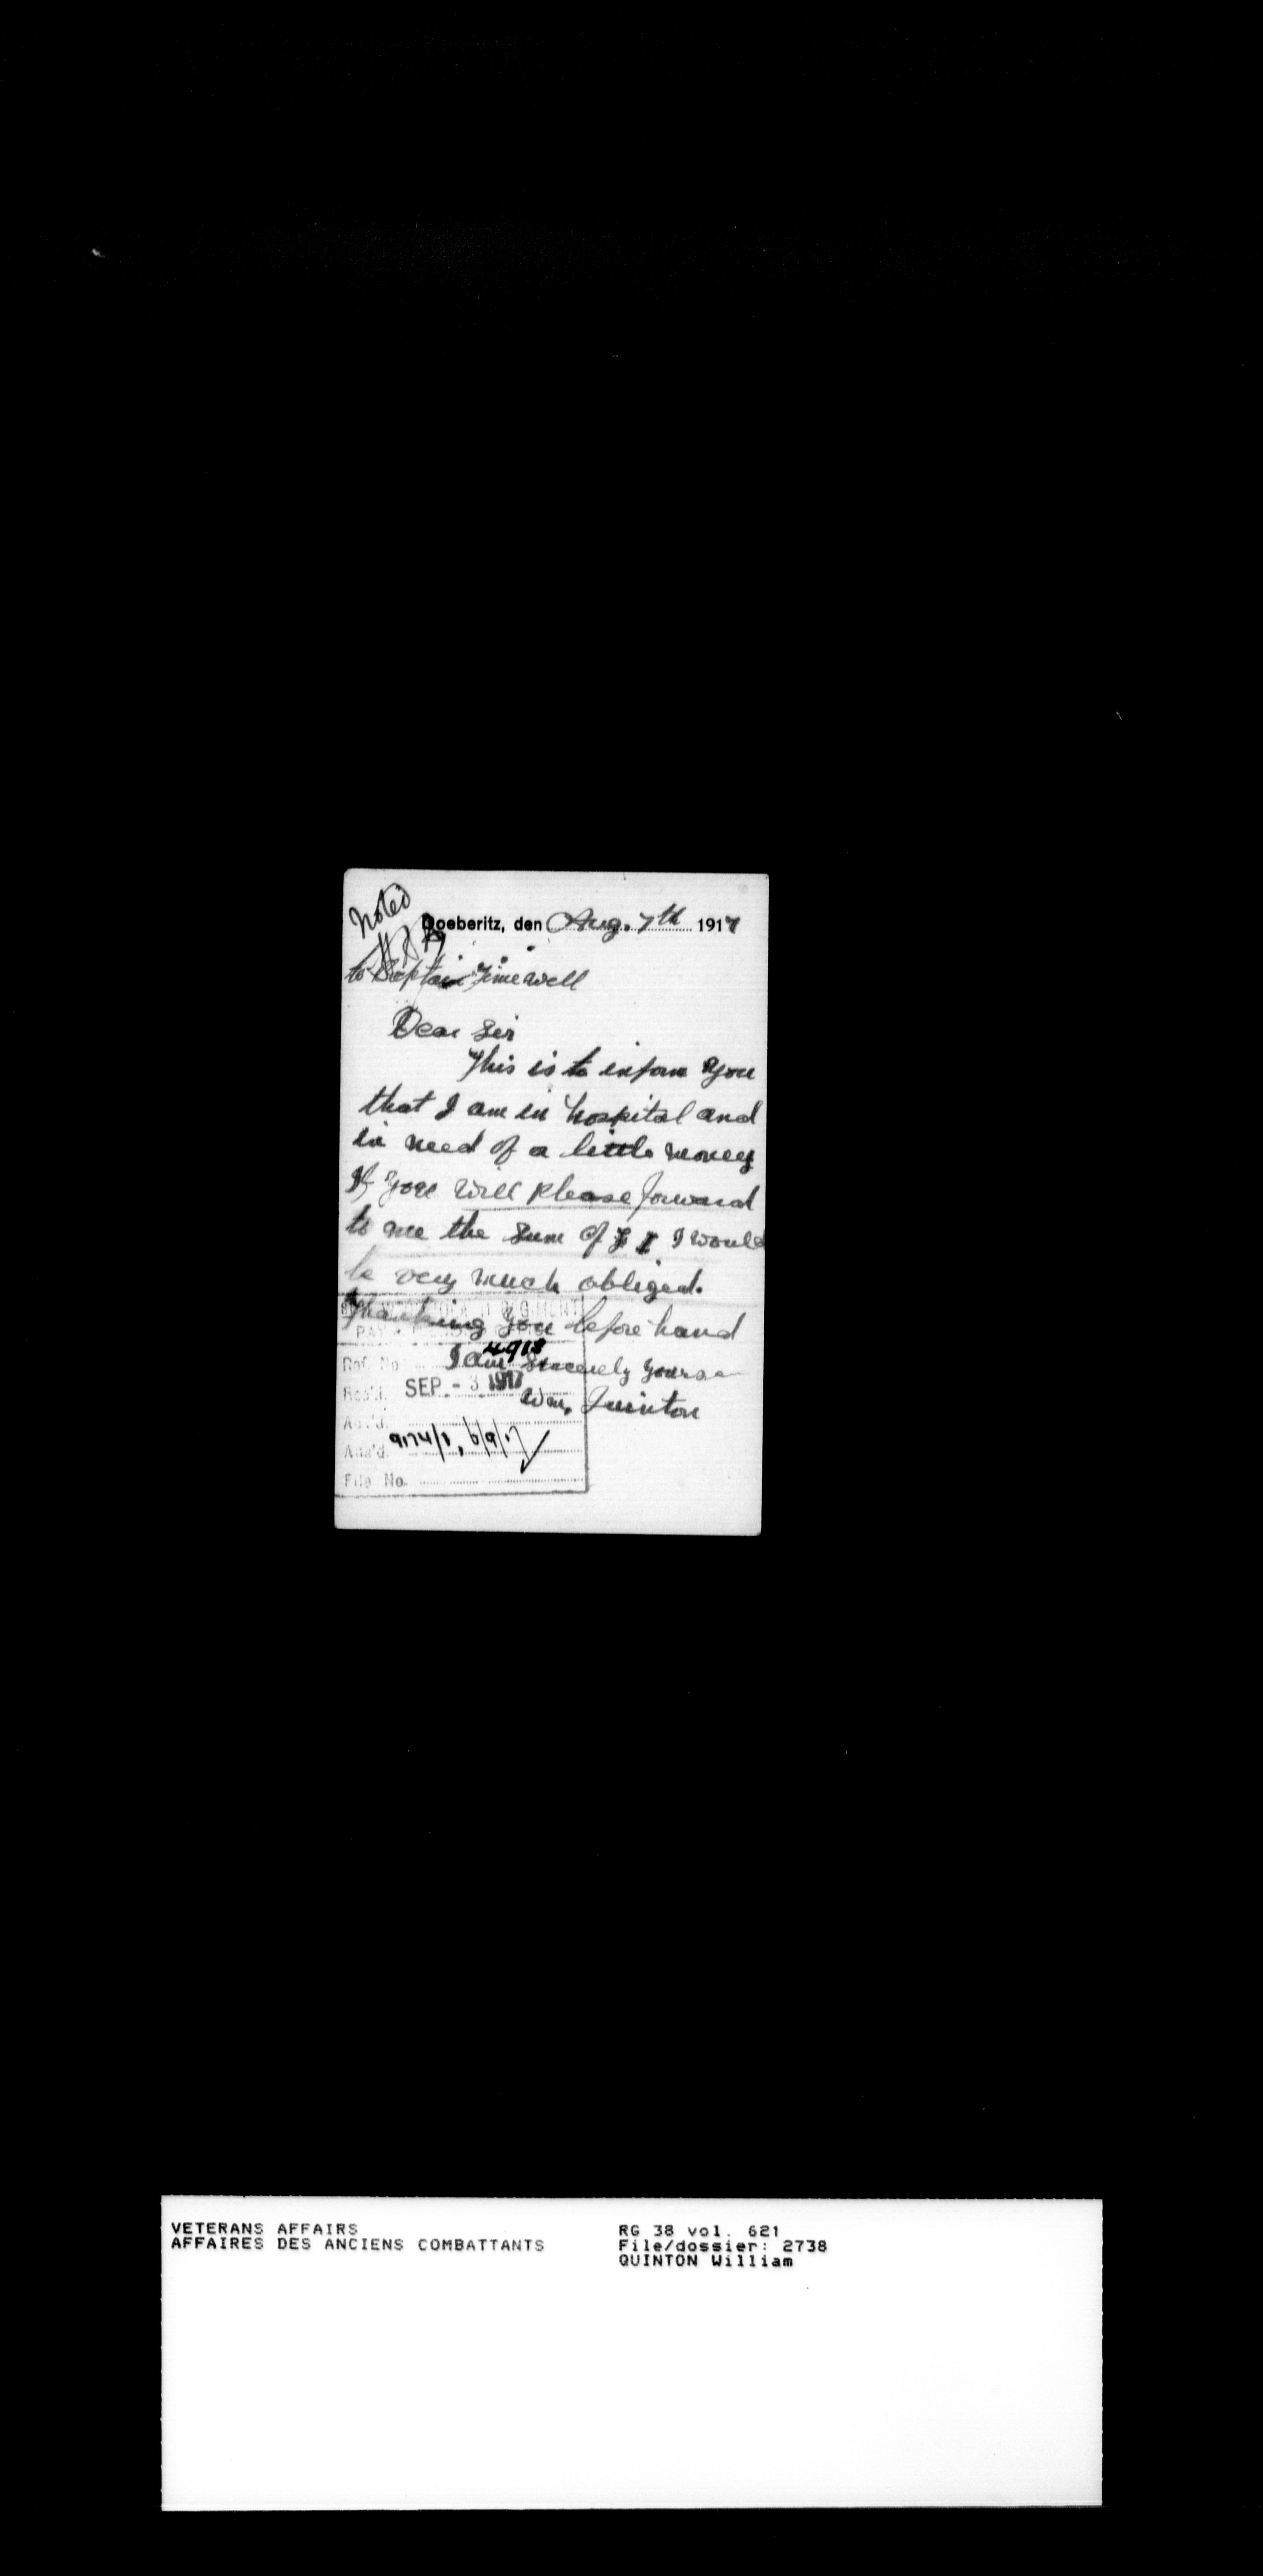 Noted
Doeberitz, den Aug. 7th 1917
to Captain Timewell
Dear Sir
This is to inform you
that I am in hospital and
in need of a little money
If you will please forward
to me the sum of £ 1 I would
be very much obliged.
Thanking you before hand
I am Sincerely yours
Wm. Quinton
REGIMENT
PAY
Ref. No. 4918
Rec'd. SEP - 3 1917
Ack'd.
Ans'd. 9174/1, 6/9/17
File No.
VETERANS AFFAIRS
AFFAIRES DES ANCIENS COMBATTANTS
RG 38 vol. 621
File/dossier: 2738
QUINTON William